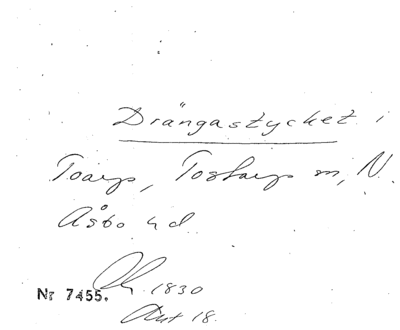 Drängastycket i
Toarp, Tostarp m, N.
Åsbo hd.
Nr 7455. 1830
Akt 18.